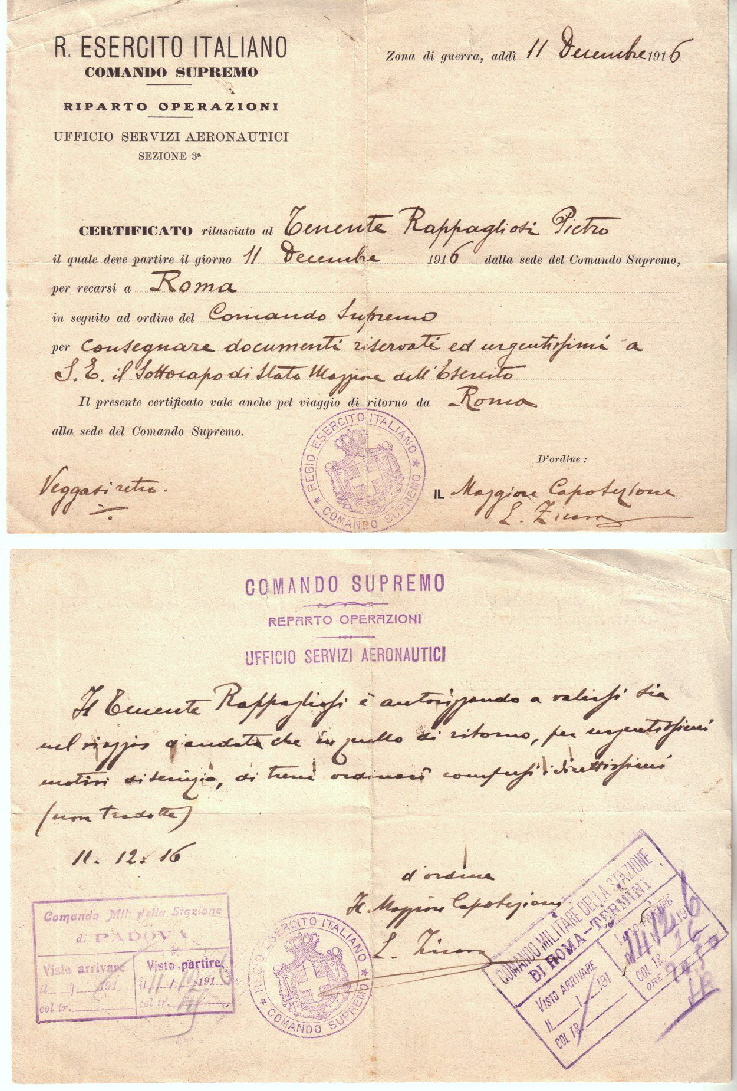 R. ESERCITO ITALIANO
COMANDO SUPREMO
RIPARTO OPERAZIONI
UFFICIO SERVIZI AERONAUTICI
SEZIONE 3ª
Zona di guerra, addì 11 Decembre 1916
CERTIFICATO rilasciato al Tenente Rappagliosi Pietro
il quale deve partire il giorno 11 Decembre 1916 dalla sede del Comando Supremo,
per recarsi a Roma
in seguito ad ordine del Comando Supremo
per consegnare documenti riservati ed urgentissimi a
S. E. il Sottocapo di Stato Maggiore dell'Esercito
Il presente certificato vale anche pel viaggio di ritorno da Roma
alla sede del Comando Supremo.
REGIO ESERCITO ITALIANO
COMANDO SUPREMO
D'ordine :
Veggasi retro.
IL Maggiore Caposezione
COMANDO SUPREMO
REPARTO OPERAZIONI
UFFICIO SERVIZI AERONAUTICI
Il Tenente Rappagliosi è autorizzando a valersi sia
nel viaggio d'andata che in quello di ritorno, per urgentissimi
motivi di servizio, di treni ordinari compresi i direttissimi
(non tradotte)
11. 12. 16
d'ordine
Il Maggiore Caposezione
Comando Mil. della Stazione
di PADOVA
Visto arrivare
Visto partire
a 191
191
col tr.
col tr.
REGIO ESERCITO ITALIANO
COMANDO SUPREMO
COMANDO MILITARE DELLA STAZIONE
DI ROMA-TERMINI
VISTO ARRIVARE
IL 191
COL TR.
COL TR.
ORE